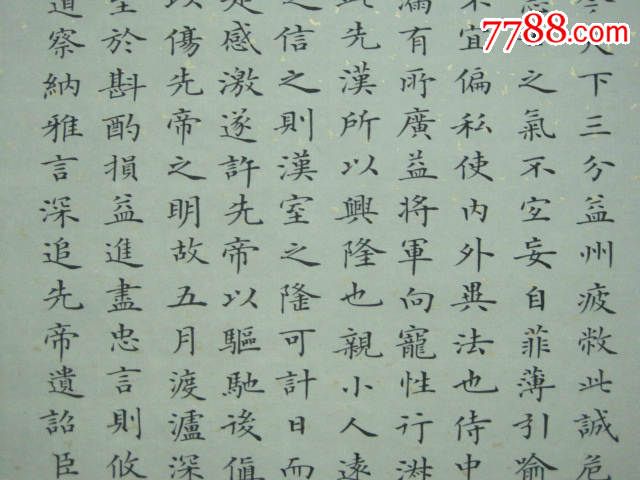 7788.com
下三分益州疲敝此誠危
之氣不宜妄自菲薄引喻
不宜偏私使內外異法也侍中
漏有所廣益將軍向寵性行淑
此先漢所以興隆也親小人遠
之信之則漢室之隆可計日而
感激遂許先帝以驅馳後值
以傷先帝之明故五月渡瀘深
至於斟酌損益進盡忠言則攸
道察納雅言深追先帝遺詔臣